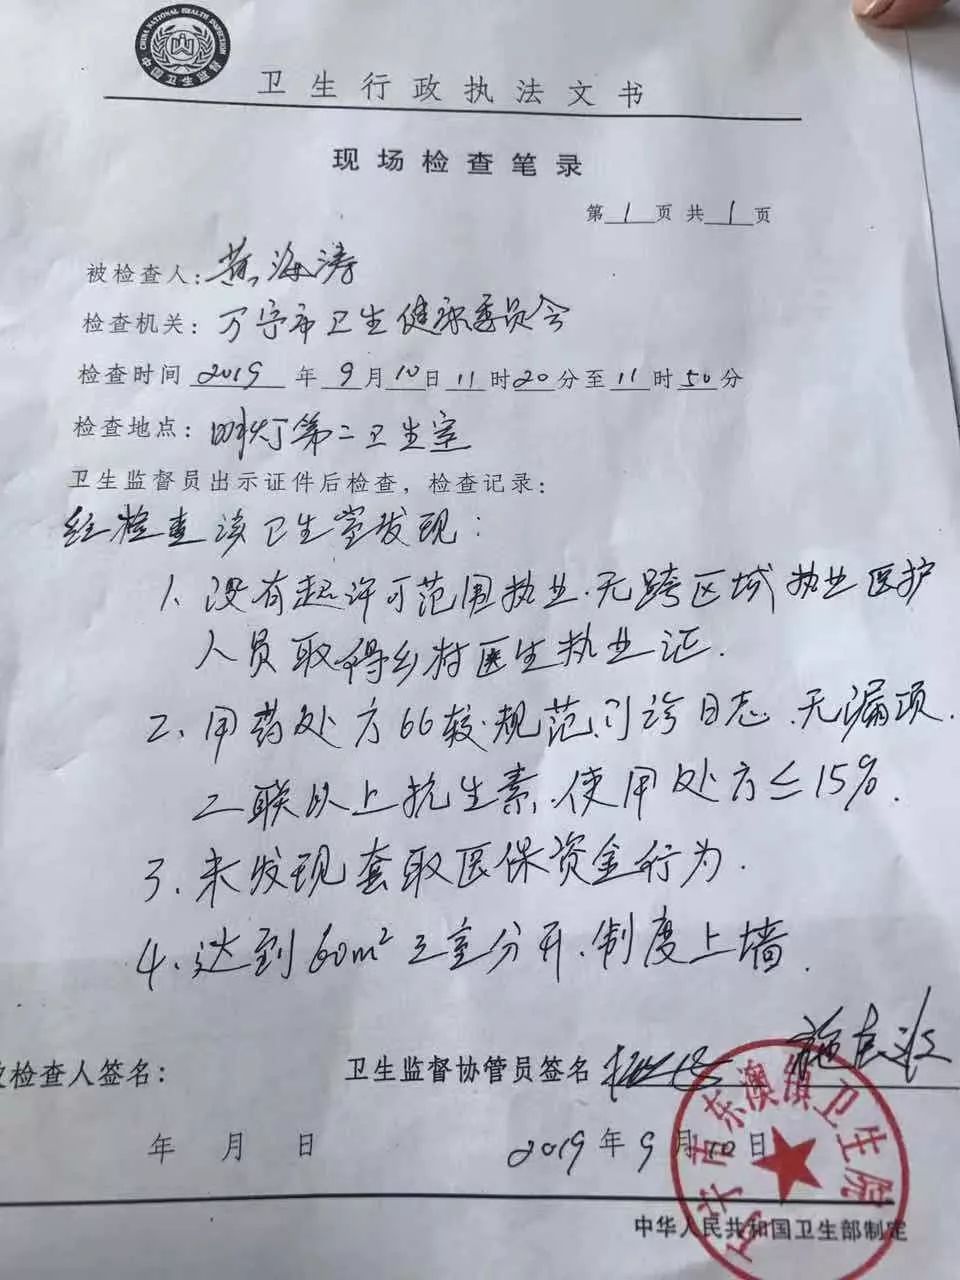 CHINA NATIONAL HEALTH INSPECTION
中国卫生监督
卫生行政执法文书
现场检查笔录
第1页 共1页
被检查人:黄海涛
检查机关:万宁市卫生健康委员会
检查时间 2019 年 9 月 10 日 11 时 20 分至 11 时 50 分
检查地点:明灯第二卫生室
卫生监督员出示证件后检查，检查记录:
经检查该卫生室发现:
1、没有超许可范围执业.无跨区域执业医护
人员取得乡村医生执业证.
2、用药处方66较.规范.门诊日志.无漏项.
二联以上抗生素.使用处方≤15%.
3.未发现套取医保资金行为.
4、达到60m² 三室分开.制度上墙.
被检查人签名: 卫生监督协管员签名
年 月 日 2019年9月10日
万宁市东澳镇卫生院
中华人民共和国卫生部制定